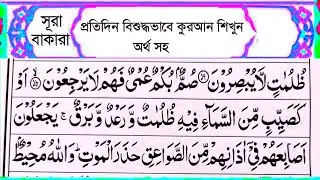 সূরা
বাকারা
প্রতিদিন বিশুদ্ধভাবে কুরআন শিখুন
অর্থ সহ
ظُلُمٰتٍ لَّا یُبْصِرُوْنَ ۝ صُمٌّۢ بُكْمٌ عُمْیٌ فَهُمْ لَا یَرْجِعُوْنَ ۝ اَوْ
كَصَیِّبٍ مِّنَ السَّمَآءِ فِیْهِ ظُلُمٰتٌ وَّرَعْدٌ وَّبَرْقٌ ۚ یَجْعَلُوْنَ
اَصَابِعَهُمْ فِیْۤ اٰذَانِهِمْ مِّنَ الصَّوَاعِقِ حَذَرَ الْمَوْتِ ؕ وَاللّٰهُ مُحِیْطٌۢ